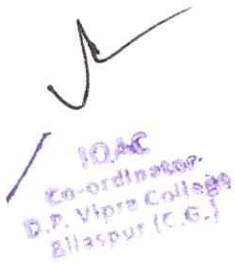 IQAC
Co-ordinator
D.P. Vipra College
Bilaspur (C.G.)